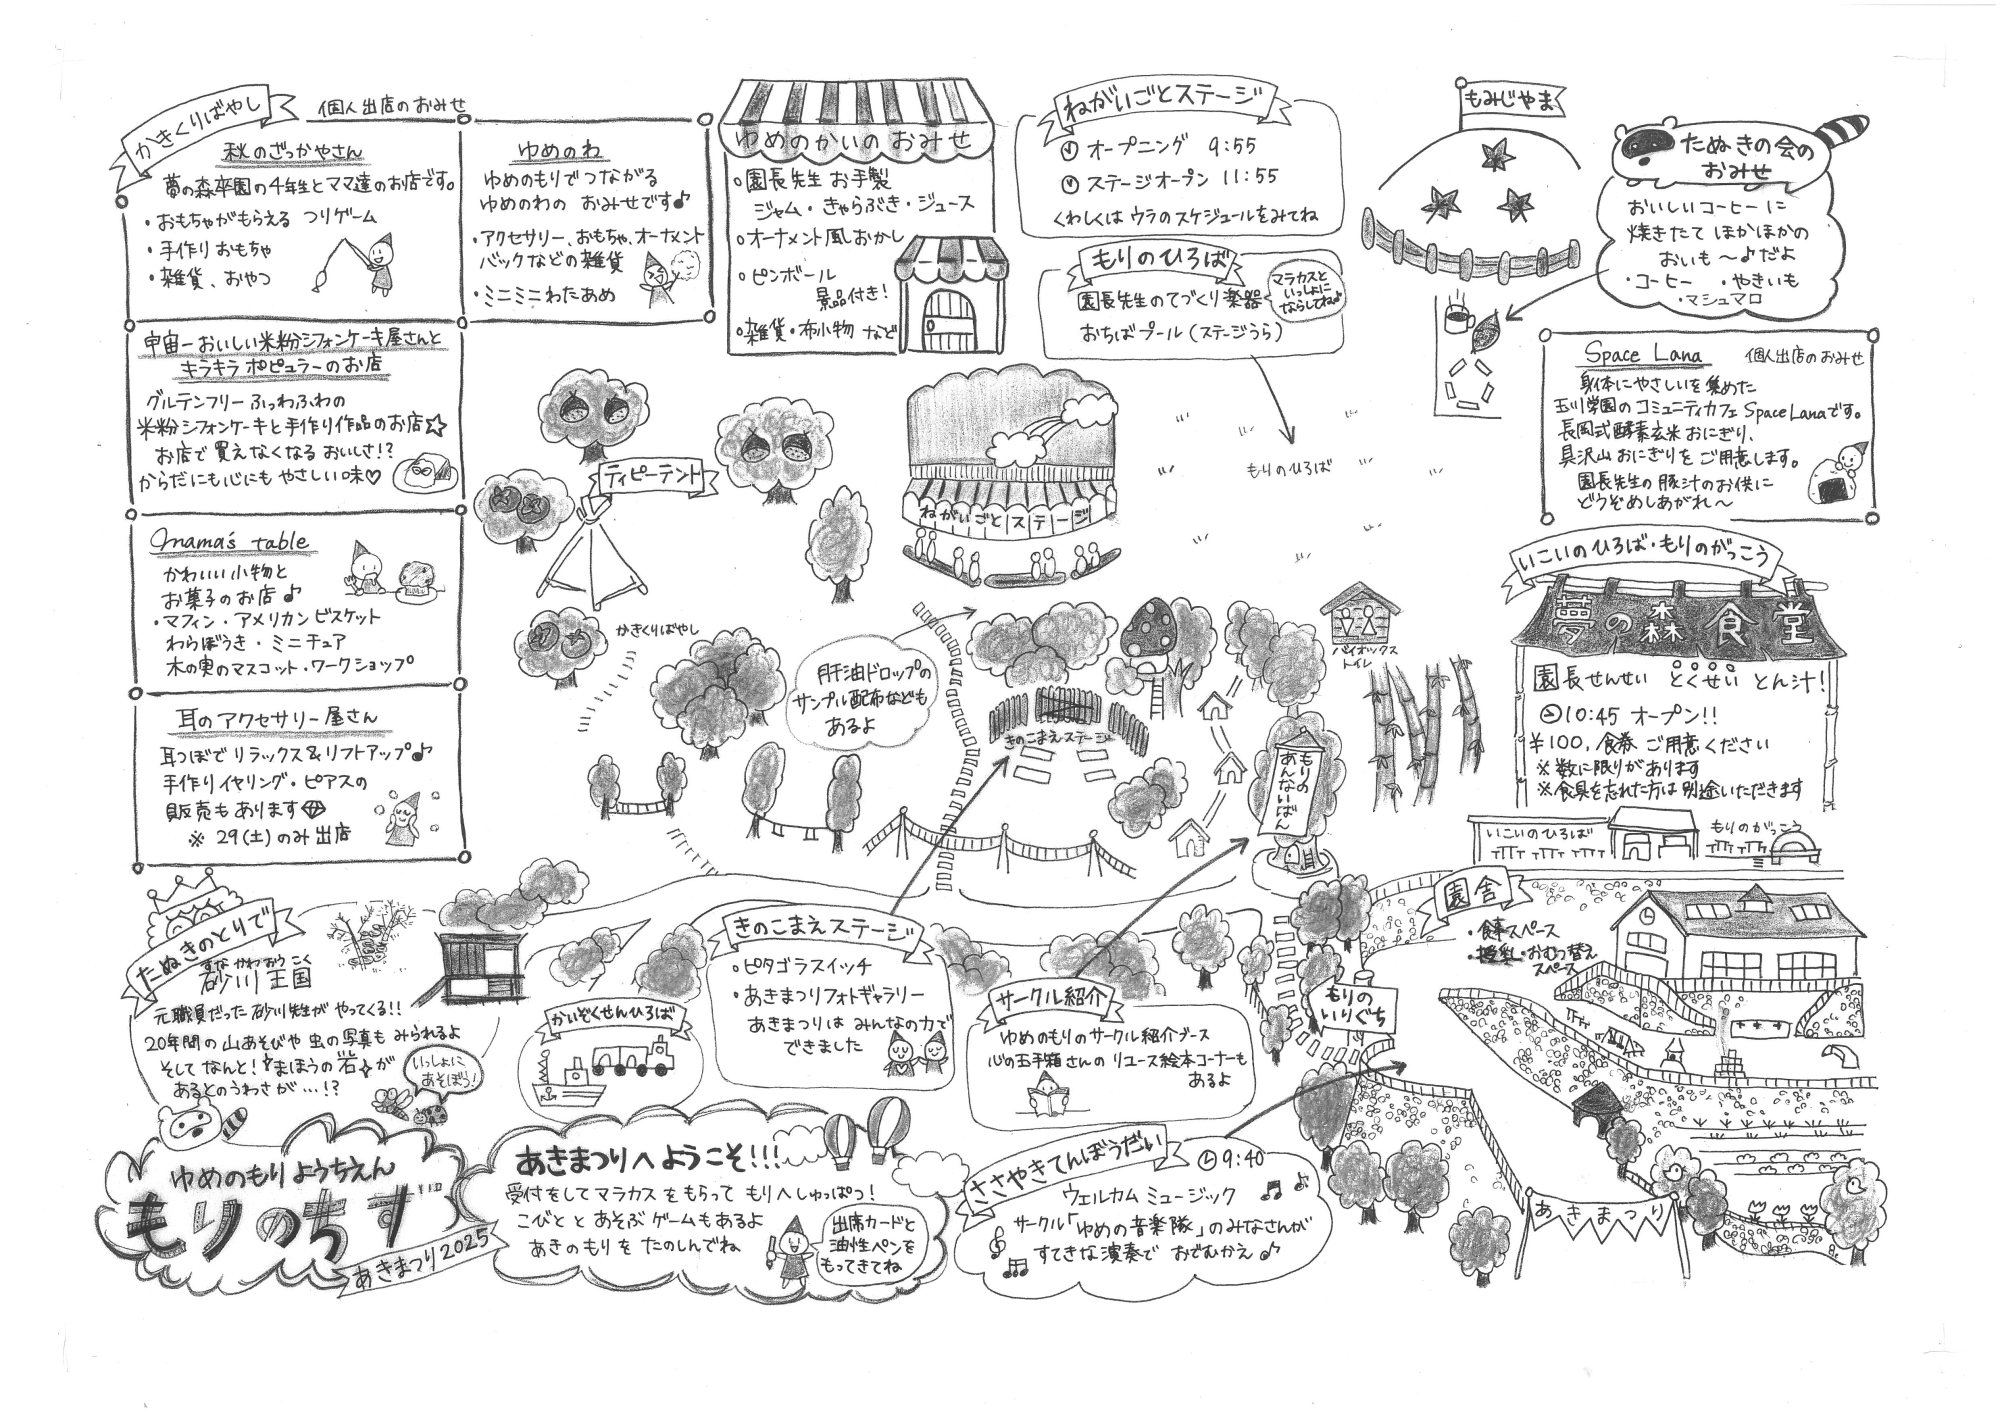 かきくりばやし
個人出店のおみせ
秋のざっかやさん
夢の森卒園の4年生とママ達のお店です。
・おもちゃがもらえる つりゲーム
・手作りおもちゃ
・雑貨、おやつ
ゆめのわ
ゆめのもりでつながる
ゆめのわの おみせです♪
・アクセサリー、おもちゃ、オーナメント
バックなどの雑貨
・ミニミニわたあめ
宇宙一おいしい米粉シフォンケーキ屋さんと
キラキラ ポピュラーのお店
グルテンフリー ふわっふわの
米粉シフォンケーキと手作り作品のお店☆
お店で買えなくなる おいしさ!?
からだにも心にも やさしい味♡
mama's table
かわいい小物と
お菓子のお店♪
・マフィン・アメリカンビスケット
わらぼうき・ミニチュア
木の実のマスコット・ワークショップ
耳のアクセサリー屋さん
耳つぼで リラックス&リフトアップ♪
手作りイヤリング・ピアスの
販売もあります
※ 29(土)のみ出店
ゆめのかいの おみせ
○園長先生お手製
ジャム・きゃらぶき・ジュース
○オーナメント風おかし
○ピンボール
景品付き!
○雑貨・布小物 など
ねがいごとステージ
オープニング 9:55
ステージオープン 11:55
くわしくは ウラのスケジュールをみてね
もりのひろば
園長先生のてづくり楽器
マラカスと
いっしょに
ならしてね♪
おちばプール(ステージうら)
もみじやま
たぬきの会の
おみせ
おいしいコーヒーに
焼きたて ほかほかの
おいも〜♪だよ
・コーヒー ・やきいも
・マシュマロ
Space Lana
個人出店のおみせ
身体にやさしいを集めた
玉川学園のコミュニティカフェ Space Lanaです。
長岡式酵素玄米おにぎり、
具沢山おにぎりをご用意します。
園長先生の豚汁のお供に
どうぞめしあがれ〜
ティピーテント
ねがいごとステージ
もりのひろば
かきくりばやし
肝油ドロップの
サンプル配布なども
あるよ
きのこまえステージ
バイオックス
トイレ
もりの
あんないばん
いこいのひろば・もりのがっこう
夢の森食堂
園長せんせい とくせい とん汁!
10:45 オープン!!
¥100,食券 ご用意ください
※数に限りがあります
※食具を忘れた方は別途いただきます
いこいのひろば
もりのがっこう
園舎
・食事スペース
・授乳・おむつ替え
スペース
たぬきのとりで
すなかわおうこく
砂川王国
元職員だった砂川先生が やってくる!!
20年間の山あそびや虫の写真も みられるよ
そしてなんと!まほうの岩が
あるとのうわさが…!?
いっしょに
あそぼう!
かいぞくせんひろば
きのこまえステージ
・ピタゴラスイッチ
・あきまつりフォトギャラリー
あきまつりは みんなの力で
できました
サークル紹介
ゆめのもりのサークル紹介ブース
心の玉手箱さんの リユース絵本コーナーも
あるよ
もりの
いりぐち
ゆめのもりようちえん
もりのちず
あきまつり2025
あきまつりへ ようこそ!!!
受付をして マラカスをもらって もりへしゅっぱつ!
こびととあそぶ ゲームもあるよ
あきのもりを たのしんでね
出席カードと
油性ペンを
もってきてね
ささやきてんぼうだい
9:40
ウェルカム ミュージック
サークル「ゆめの音楽隊」のみなさんが
すてきな演奏で おでむかえ♪
あきまつり